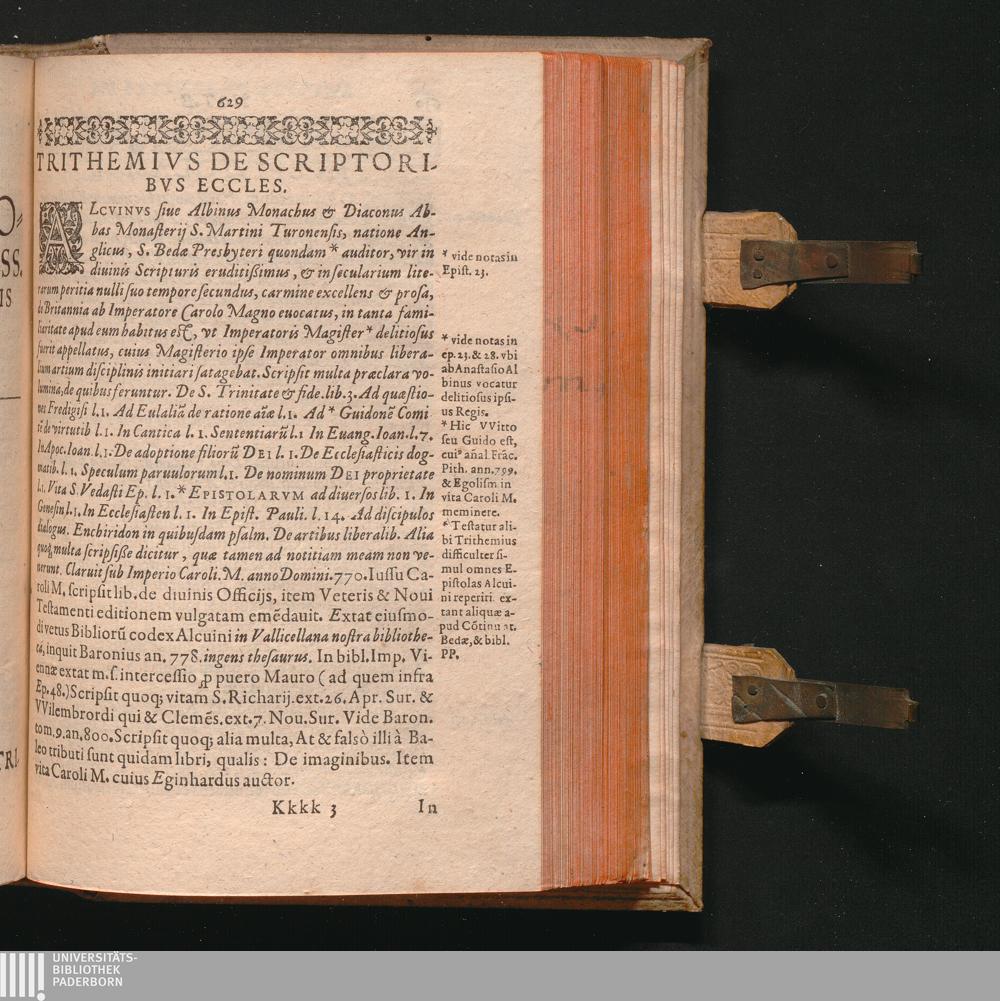 629
TRITHEMIVS DE SCRIPTORI-
BVS ECCLES.
ALCVINVS siue Albinus Monachus & Diaconus Ab-
bas Monasterij S. Martini Turonensis, natione An-
glicus, S. Bedæ Presbyteri quondam * auditor, vir in
diuinis Scripturis eruditissimus, & in secularium lite-
rarum peritia nulli suo tempore secundus, carmine excellens & prosa,
de Britannia ab Imperatore Carolo Magno euocatus, in tanta fami-
liaritate apud eum habitus est, vt Imperatoris Magister * delitiosus
fuerit appellatus, cuius Magisterio ipse Imperator omnibus libera-
lium artium disciplinis initiari satagebat. Scripsit multa præclara vo-
lumina, de quibus feruntur. De S. Trinitate & fide. lib. 3. Ad quæstio-
nes Fredigisi l. 1. Ad Eulaliā de ratione aīæ l. 1. Ad * Guidonē Comi
tē de virtutib l. 1. In Cantica l. 1. Sententiarū l. 1 In Euang. Ioan. l. 7.
In Apoc. Ioan. l. 1. De adoptione filiorū DEI l. 1. De Ecclesiasticis dog-
matib. l. 1. Speculum paruulorum l. 1. De nominum DEI proprietate
l. 1. Vita S. Vedasti Ep. l. 1. * EPISTOLARVM ad diuersos lib. 1. In
Genesin l. 1. In Ecclesiasten l. 1. In Epist. Pauli. l. 14. Ad discipulos
dialogus. Enchiridon in quibusdam psalm. De artibus liberalib. Alia
quoq; multa scripsisse dicitur, quæ tamen ad notitiam meam non ve-
nerunt. Claruit sub Imperio Caroli. M. anno Domini. 770. Iussu Ca-
roli M. scripsit lib. de diuinis Officijs, item Veteris & Noui
Testamenti editionem vulgatam emēdauit. Extat eiusmo-
di vetus Bibliorū codex Alcuini in Vallicellana nostra bibliothe-
ca, inquit Baronius an. 778. ingens thesaurus. In bibl. Imp. Vi-
ennæ extat m. s. intercessio ꝓ puero Mauro (ad quem infra
Ep. 48.) Scripsit quoq; vitam S. Richarij. ext. 26. Apr. Sur. &
VVilembrordi qui & Clemēs. ext. 7. Nou. Sur. Vide Baron.
tom. 9. an. 800. Scripsit quoq; alia multa, At & falsò illi à Ba-
leo tributi sunt quidam libri, qualis: De imaginibus. Item
vita Caroli M. cuius Eginhardus auctor.
Kkkk 3 In
* vide notas in
Epist. 23.
* vide notas in
ep. 23. & 28. vbi
ab Anastasio Al
binus vocatur
delitiosus ipsi-
us Regis.
* Hic VVitto
seu Guido est,
cui⁹ añal. Frāc.
Pith. ann. 799.
& Egolism. in
vita Caroli M.
meminere.
* Testatur ali-
bi Trithemius
difficulter si-
mul omnes E-
pistolas Alcui-
ni reperiri. ex-
tant aliquæ a-
pud Cōtinuat.
Bedæ, & bibl.
PP.
O=
SS.
IS
TRI-
UNIVERSITÄTS-
BIBLIOTHEK
PADERBORN